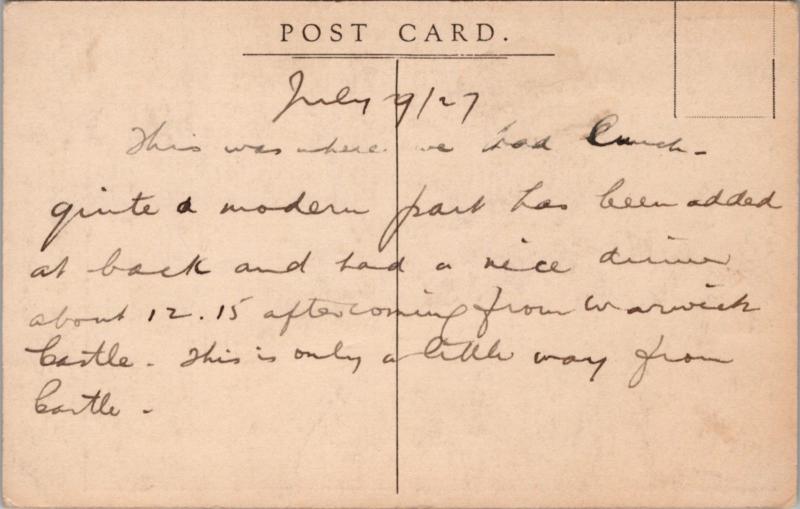 POST CARD.
July 9/27
This was where we had lunch -
quite a modern part has been added
at back and had a nice dinner
about 12.15 after coming from Warwick
Castle. This is only a little way from
Castle -